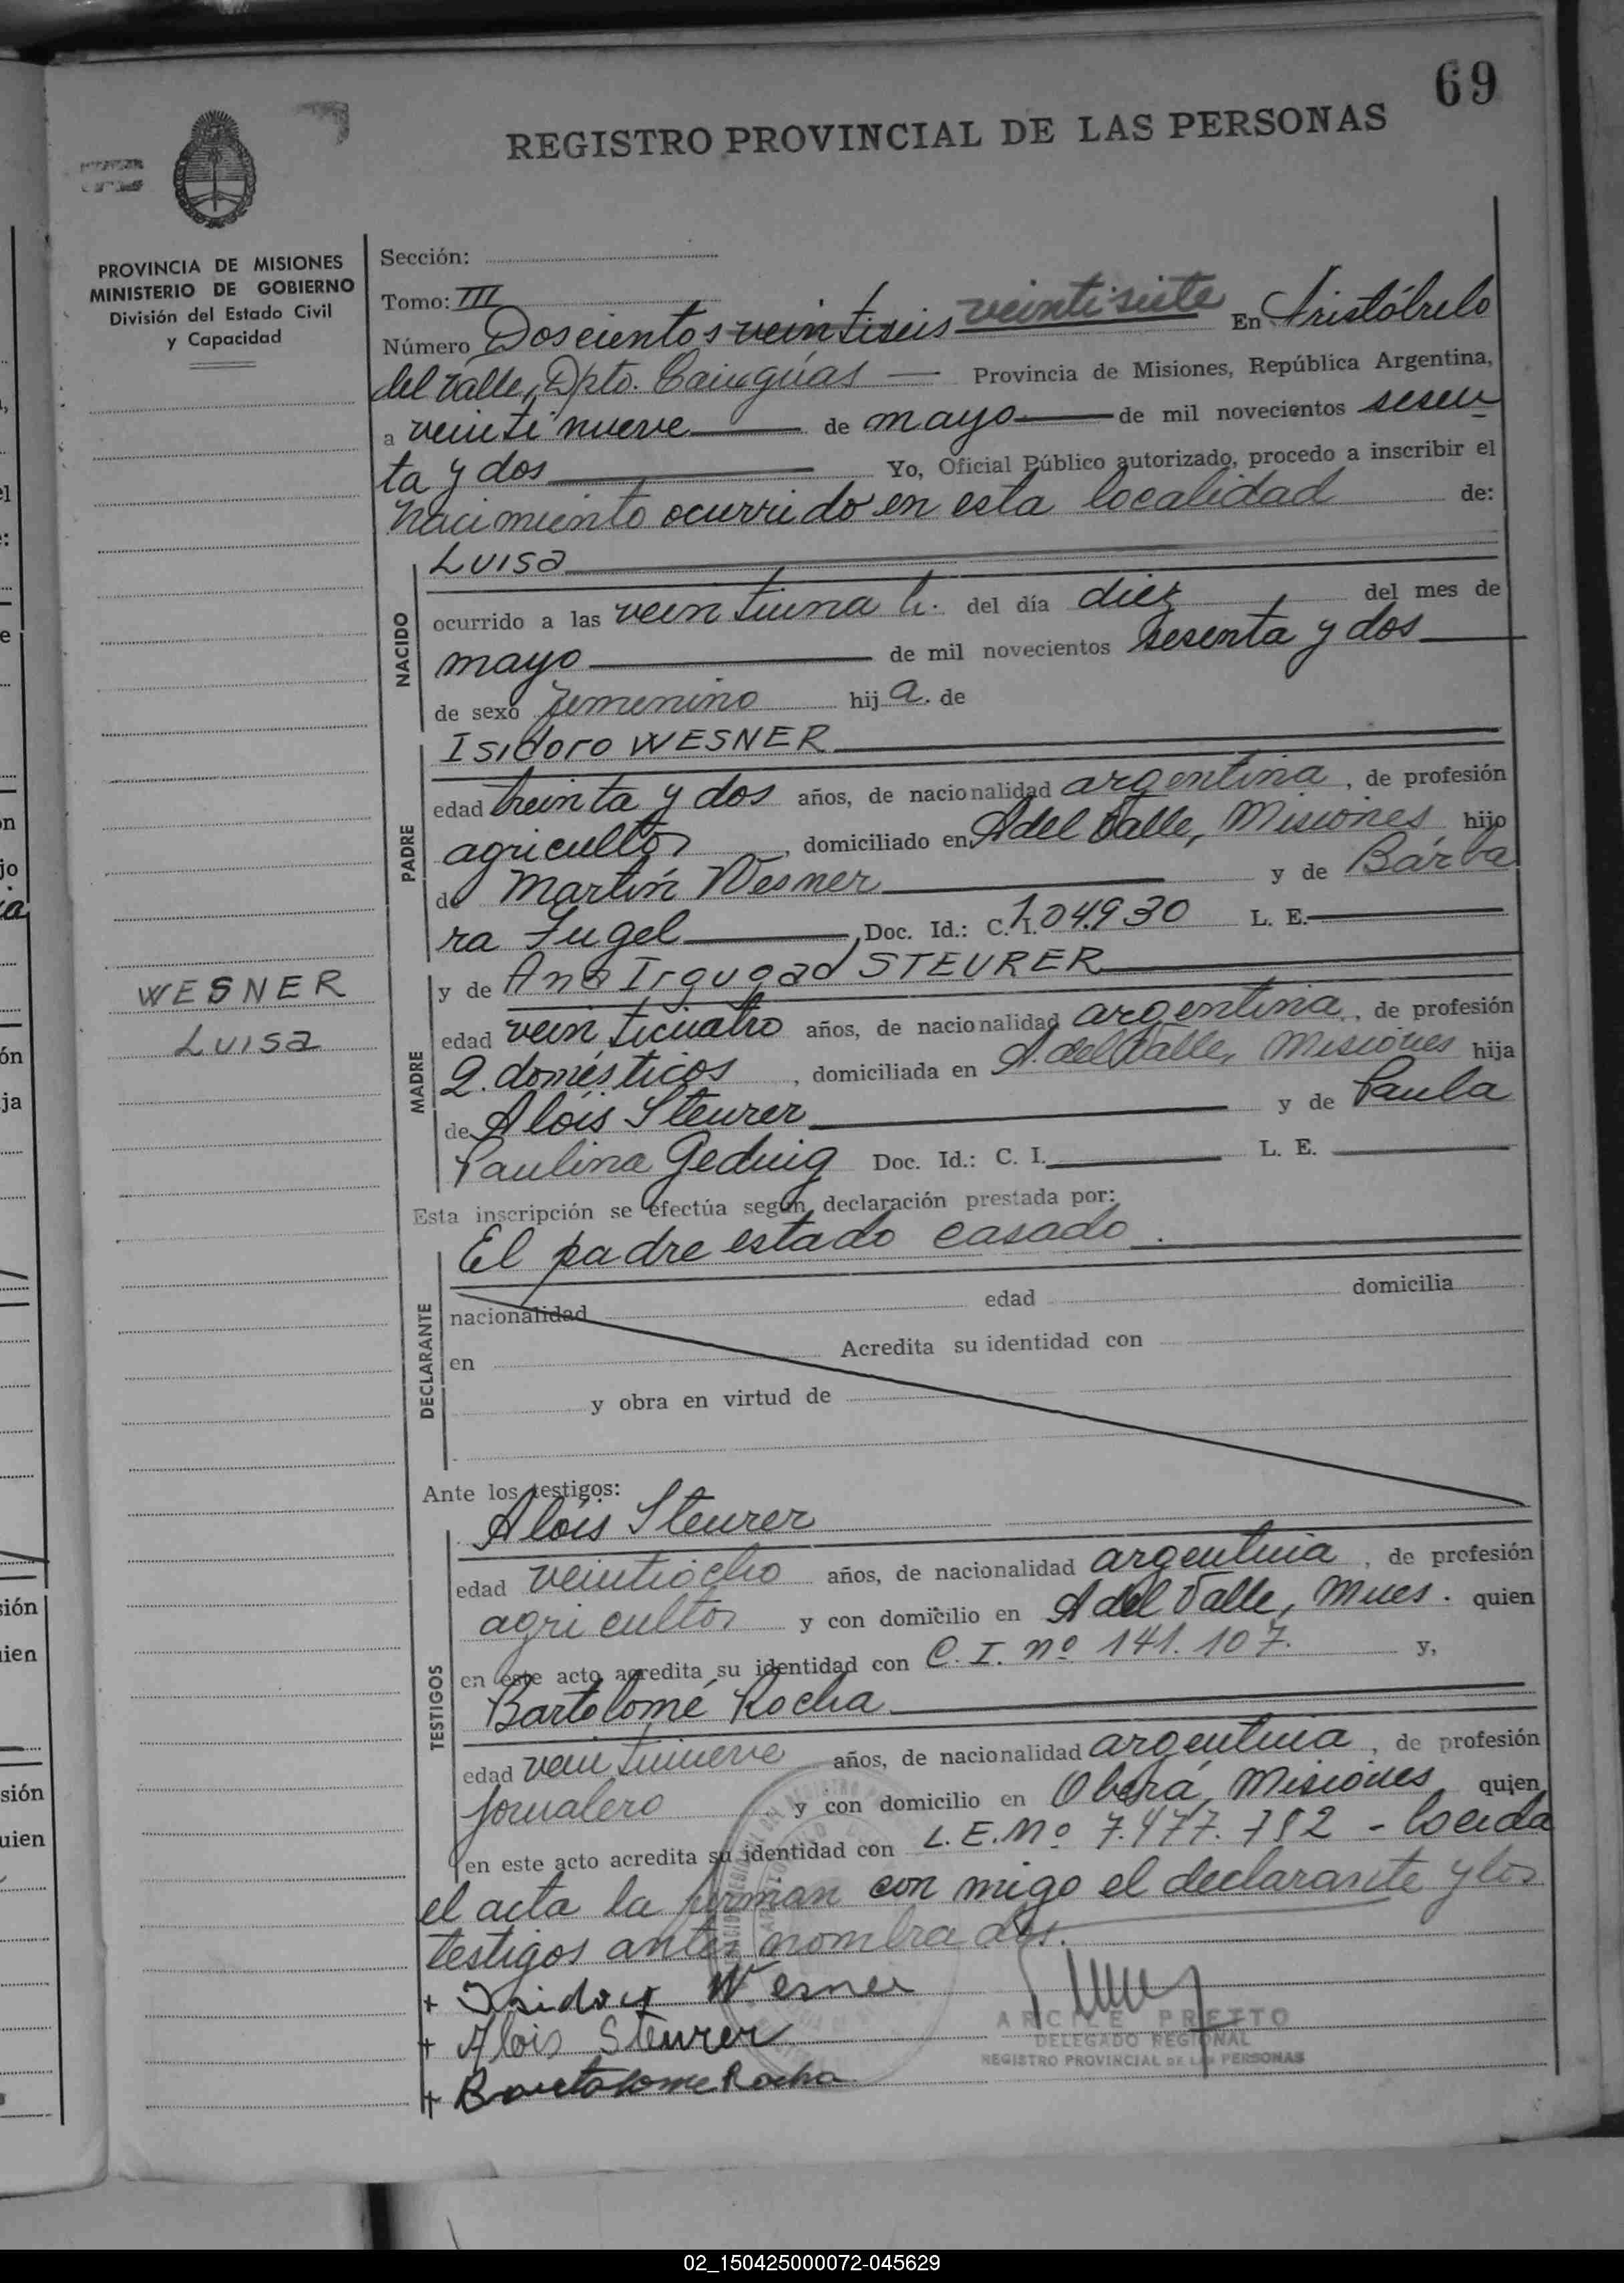 69
REGISTRO PROVINCIAL DE LAS PERSONAS
PROVINCIA DE MISIONES
MINISTERIO DE GOBIERNO
División del Estado Civil
y Capacidad
Sección:
Tomo: III
Número Doscientos veintiseis veintisiete En Aristóbulo
del Valle, Dpto. Cainguas — Provincia de Misiones, República Argentina,
a veintinueve de mayo de mil novecientos sesen
ta y dos Yo, Oficial Público autorizado, procedo a inscribir el
Nacimiento ocurrido en esta localidad de:
NACIDO
Luisa
ocurrido a las veintiuna h. del día diez del mes de
mayo de mil novecientos sesenta y dos
de sexo femenino hij a. de
PADRE
Isidoro WESNER
edad treinta y dos años, de nacionalidad argentina, de profesión
agricultor, domiciliado en A del Valle, Misiones hijo
de Martín Wesner y de Bárba
ra Fugel, Doc. Id.: C. I. 104.930 L. E.
MADRE
y de Ana Irgugad STEURER
WESNER
Luisa
edad veinticuatro años, de nacionalidad argentina, de profesión
Q. domésticos, domiciliada en A. del Valle, Misiones hija
de Alois Steurer y de Paula
Paulina Geduig Doc. Id.: C. I. L. E.
Esta inscripción se efectúa según declaración prestada por:
DECLARANTE
El padre estado casado.
nacionalidad edad domicilia
en Acredita su identidad con
y obra en virtud de
Ante los testigos:
TESTIGOS
Alois Steurer
edad veintiocho años, de nacionalidad argentina, de profesión
agricultor y con domicilio en A del Valle, Mnes. quien
en este acto acredita su identidad con C. I. nº 141.107. y,
Bartolomé Rocha
edad veintinueve años, de nacionalidad argentina, de profesión
jornalero y con domicilio en Oberá, Misiones quien
en este acto acredita su identidad con L. E. Nº 7.477.792 - Leida
el acta la firman con migo el declarante y los
testigos antes nombrados.
+ Isidoro Wesner
+ Alois Steurer
+ Bartolome Rocha
ARCILE PRETTO
DELEGADO REGIONAL
REGISTRO PROVINCIAL DE LAS PERSONAS
02_150425000072-045629